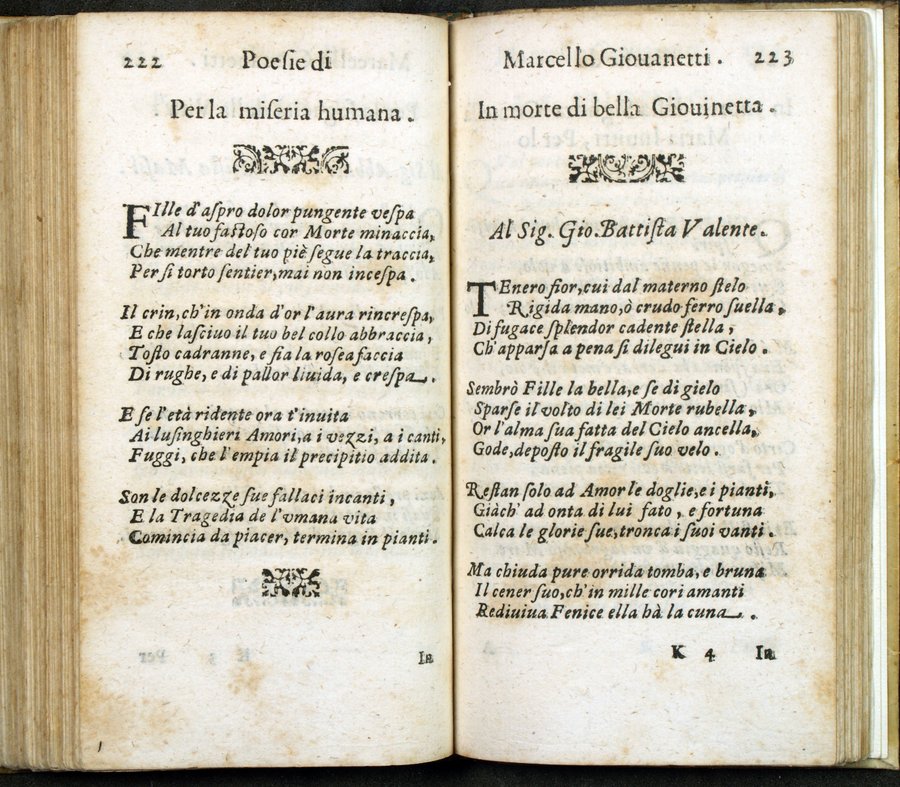 222 Poesie di
Per la miseria humana.
FIlle d'aspro dolor pungente vespa
Al tuo fastoso cor Morte minaccia,
Che mentre del tuo piè segue la traccia,
Per sì torto sentier, mai non incespa.
Il crin, ch'in onda d'or l'aura rincrespa,
E che lasciuo il tuo bel collo abbraccia,
Tosto cadranne, e fia la rosea faccia
Di rughe, e di pallor liuida, e crespa.
E se l'età ridente ora t'inuita
Ai lusinghieri Amori, a i vezzi, a i canti,
Fuggi, che l'empia il precipitio addita.
Son le dolcezze sue fallaci incanti,
E la Tragedia de l'vmana vita
Comincia da piacer, termina in pianti.
In
Marcello Giouanetti. 223
In morte di bella Giouinetta.
Al Sig. Gio. Battista Valente.
TEnero fior, cui dal materno stelo
Rigida mano, ò crudo ferro suella,
Di fugace splendor cadente stella,
Ch'apparsa a pena si dilegui in Cielo.
Sembrò Fille la bella, e se di gielo
Sparse il volto di lei Morte rubella,
Or l'alma sua fatta del Cielo ancella,
Gode, deposto il fragile suo velo.
Restan solo ad Amor le doglie, e i pianti,
Giàch' ad onta di lui fato, e fortuna
Calca le glorie sue, tronca i suoi vanti.
Ma chiuda pure orrida tomba, e bruna
Il cener suo, ch' in mille cori amanti
Rediuiua Fenice ella hà la cuna.
K 4 In